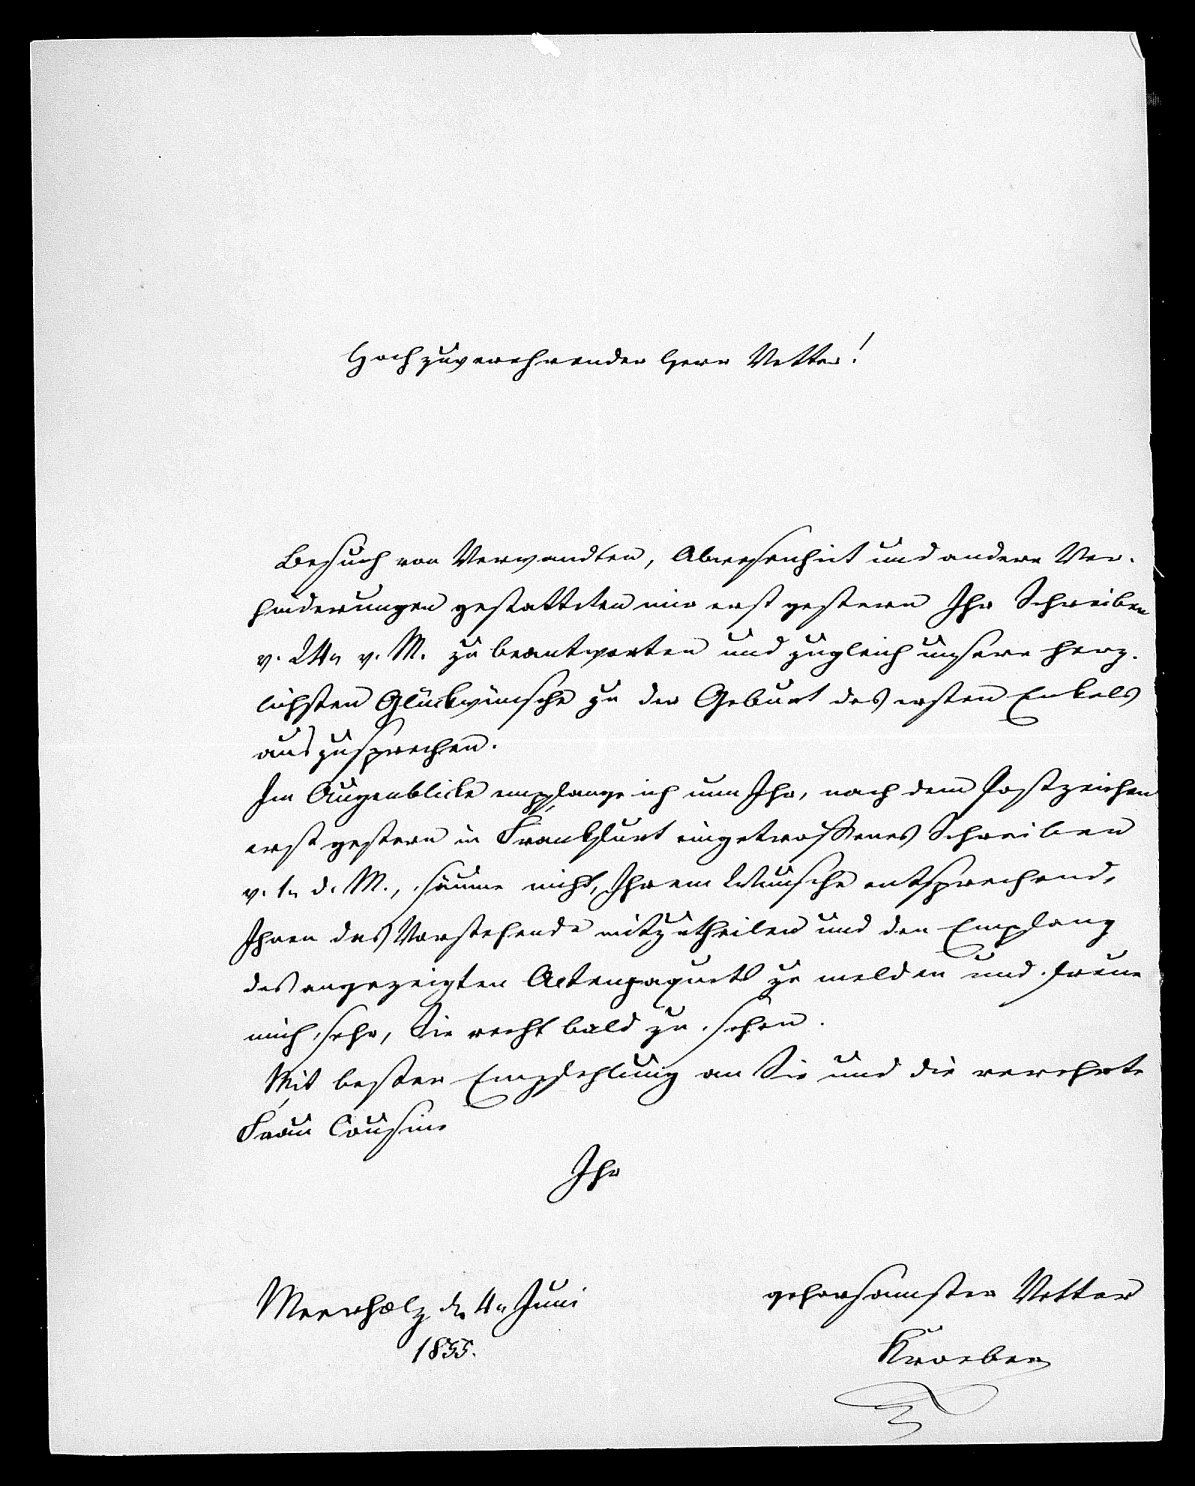 Hochzuverehrender Herr Vetter!
Besuch von Verwandten, Abwesenheit und andere Ver-
hinderungen gestatteten mir erst gestern Ihr Schreiben
v. 24n v. M. zu beantworten und zugleich unsere herz-
lichsten Glückwünsche zu der Geburt des ersten Enkels
auszusprechen.
Im Augenblicke empfange ich nun Ihr, nach dem Postzeichen
erst gestern in Frankfurt eingetroffenes Schreiben
v. 1n d. M., säume nicht, Ihrem Wunsche entsprechend,
Ihnen das Vorstehende mitzutheilen und den Empfang
des angezeigten Actenpaquets zu melden und freue
mich sehr, Sie recht bald zu sehen.
Mit bester Empfehlung an Sie und die verehrte
Frau Cousine
Ihr
gehorsamster Vetter
Kroeber
Meerholz dn 4n Juni
1855.